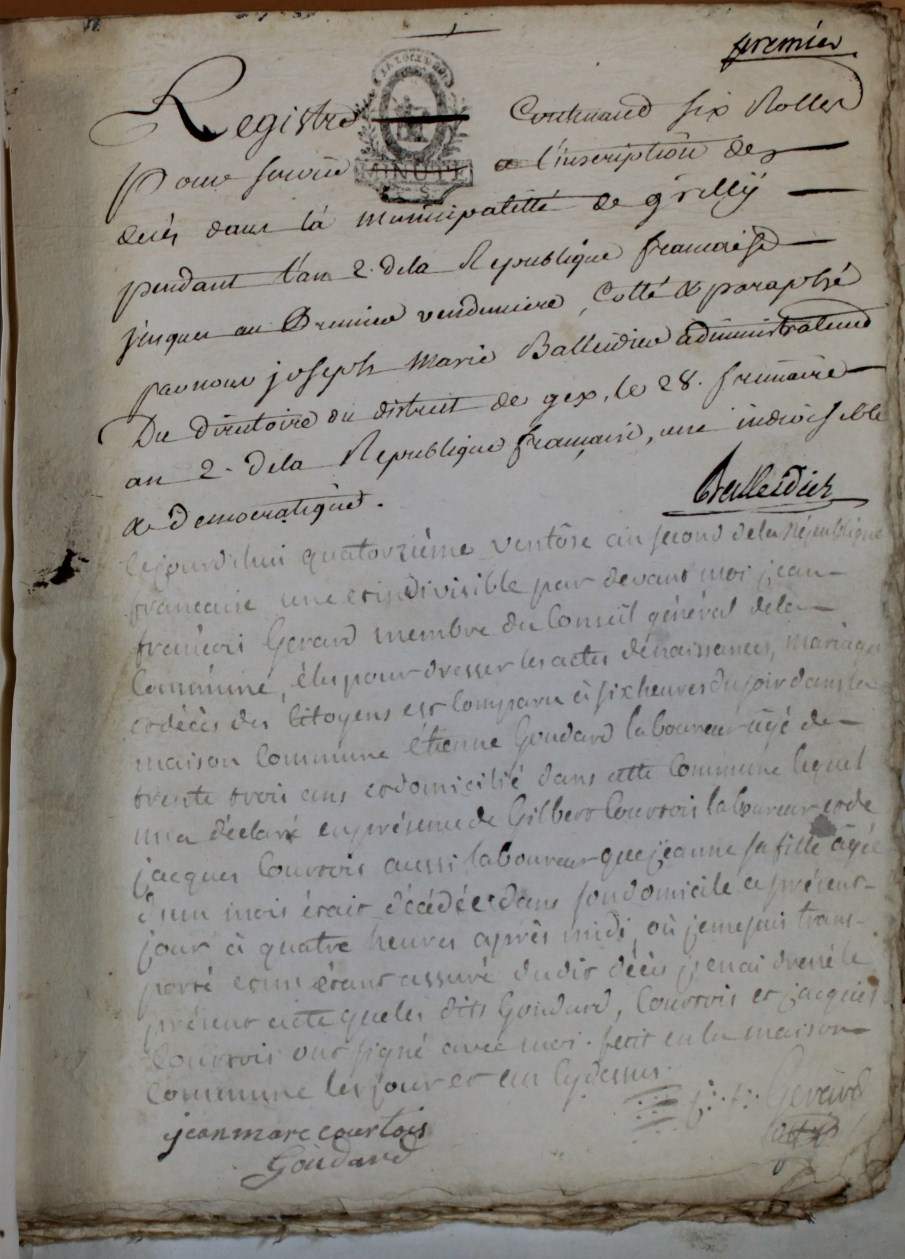 1
premier
Registre Contenand six Rolles
Pour servir MINUTE a l'inscription de
decès dans la municipalitté de grilly
pendant l'an 2. de la Republique francaise
jusques au Premier vendemiere, Cotté & paraphé
par nous joseph Marie Balleidier administrateur
Du directoire du district de gex, le 28. frimaire
an 2. de la Republique française, une indivisible
& Democratique.
Balleidier
Cejourd'hui quatorzième ventôse an second de la République
francaise une et indivisible par devant moi jean
francois Gerard membre du Conseil général de la
Commune, élu pour dresser les actes de naissances, mariages
et décès des Citoyens est Comparu à six heures du soir dans la
maison Commune étienne Goudard laboureur âgé de
trente trois ans et domicilié dans cette Commune lequel
m'a déclaré en présence de Gilbert Courtois laboureur et de
jacques Courtois aussi laboureur que jeanne sa fille âgée
d'un mois était décédée dans son domicile ce présent
jour à quatre heures après midi, où je me suis trans-
porté et m'étant assuré dudit décès j'en ai dressé le
présent acte que les dits Goudard, Courtois et jacques
Courtois ont signé avec moi. fait en la maison
Commune les jour et an Cy dessus.
jean marc courtois
Goudard
j: f: Gerard